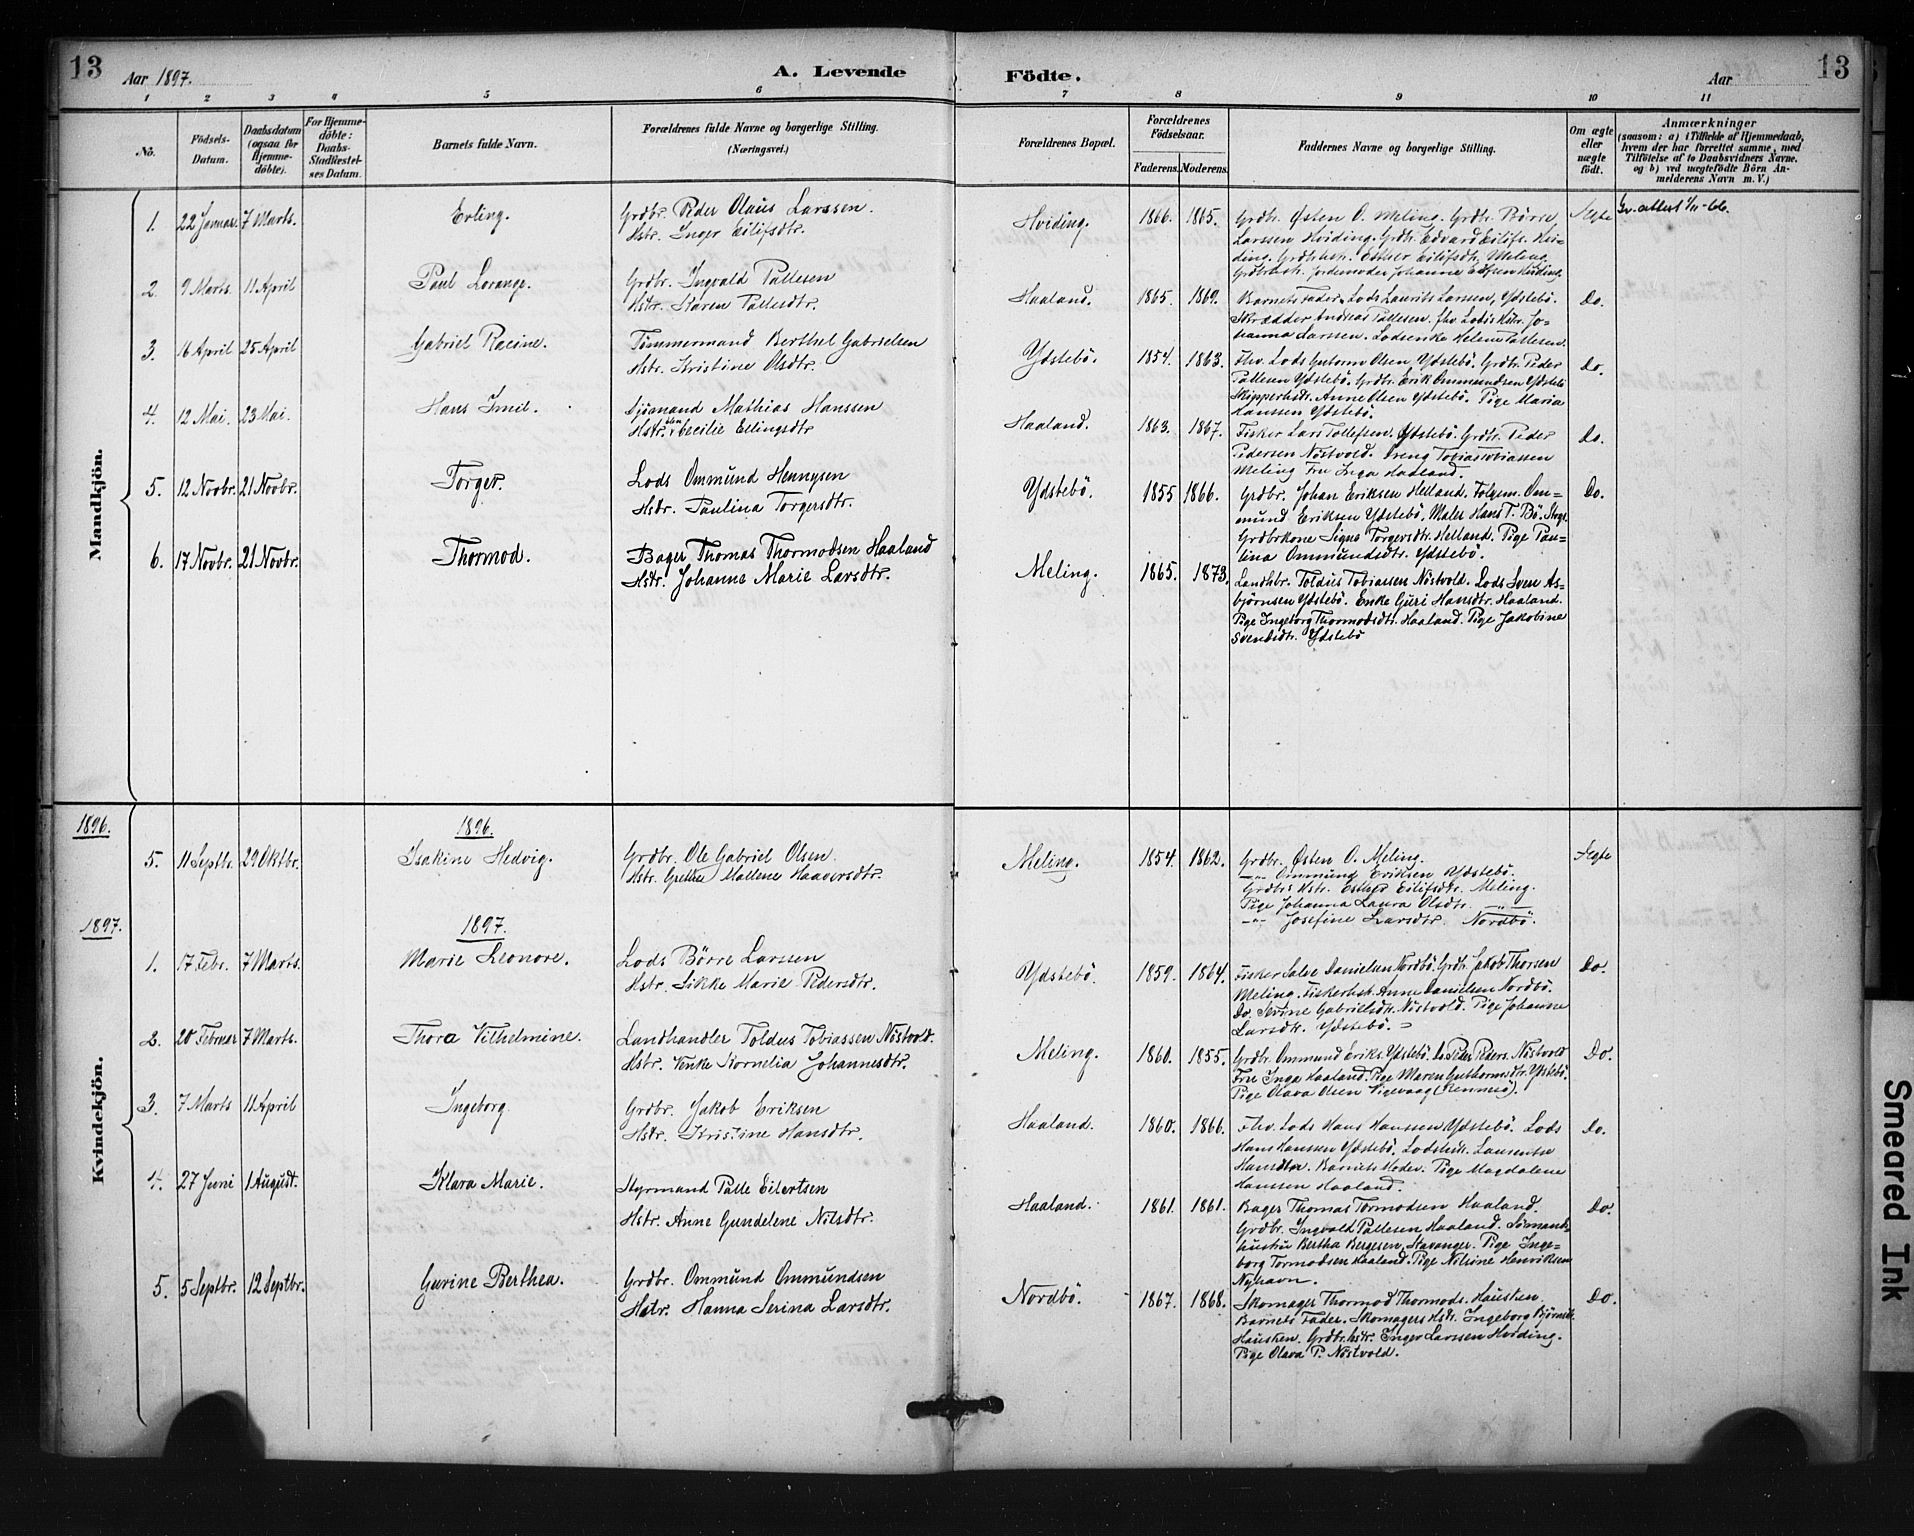 13
Aar 1897.
A. Levende
Födte.
Aar
13
1 2 3 4 5 6 7 8 9 10 11
No.
Födsels-Datum.
Daabsdatum (ogsaa for Hjemme-döbte).
For Hjemme-döbte: Daabs-Stadfæstel-ses Datum.
Barnets fulde Navn.
Forældrenes fulde Navne og borgerlige Stilling. (Næringsvei.)
Forældrenes Bopæl.
Forældrenes Födselsaar.
Faderens. Moderens.
Faddernes Navne og borgerlige Stilling.
Om ægte eller uægte födt.
Anmærkninger
(saasom: a) i Tilfælde af Hjemmedaab, hvem der har forrettet samme, med Tilföielse af to Daabsvidners Navne, og b) ved uægtefödte Börn An-melderens Navn m. V.)
Mandkjön.
1. 22 Januar. 7 Marts. Erling. Grdbr. Peder Olaus Larssen.
Hstr. Inger Eilifsdtr.
Hviding. 1866. 1865. Grdbr. Østen O. Meling. Grdbr. Børre
Larssen Hviding. Grdbr. Edvard Eilifs. Hvi=
ding. Grdbrhstr. Esther Eilifsdtr. Meling.
Ægte
2. 9 Marts. 11 April Paul Lorange. Grdbr. Ingvald Pallesen
Hstr. Karen Pallesdtr.
Haaland. 1865. 1869. Barnets Fader. Lods Laurits Larssen, Ydstebö.
Skrædder Andreas Pallesen. fhv. Lods Hstr. Jo-
hanna Larssen. Lodsenke Helene Pallesen.
Do.
3. 16 April 25 April Gabriel Racine. Tömmermand Berthel Gabrielsen
Hstr. Kristine Olsdtr.
Ydstebö. 1854. 1863. Fhv. Lods Guttorm Olsen, Ydstebö. Grdbr. Peder
Pallesen Ydstebö. Grdbr. Erik Ommundsen Ydstebö
Skipperhstr. Anne Olsen Ydstebö. Pige Maria
Hanssen Ydstebö.
Do.
4. 12 Mai. 23 Mai. Hans Emil. Sjömand Mathias Hanssen
Hstr. Cecilie Ellingsdtr
Haaland. 1863. 1867. Fisker Lars Tollefsen. Ydstebö. Grdbr. Peder
Pedersen Nöstvold. Dreng Tobias Tobiassen
Meling Fru Inga Haaland.
Do.
5. 12 Novbr. 21 Novbr. Torger. Lods Ommund Hennysen
Hstr. Paulina Torgersdtr.
Ydstebö. 1855 1866. Grdbr. Johan Eriksen Helland. Folgem. Om=
mund Eriksen Ydstebö. Maler Hans T. Bö.
Grdbrkone Signe Torgersdtr. Helland. Pige Pau=
lina Ommundsdtr. Ydstebö.
Do.
6. 17 Novbr. 21 Novbr. Thormod. Bager Thomas Thormodsen Haaland
Hstr. Johanne Marie Larsdtr.
Meling. 1865. 1873. Landhbr. Toldus Tobiassen Nöstvold. Lods Sven As=
björnsen Ydstebö. Enke Guri Hansdtr. Haaland.
Pige Ingeborg Thormodsdtr. Haaland. Pige Jakobine
Svendsdtr. Ydstebö
Kvindekjön.
1896. 1896.
5. 11 Septbr. 29 Oktbr. Isakine Hedvig. Grdbr. Ole Gabriel Olsen.
Hstr. Grethe Mallene Haaversdtr.
Meling. 1854. 1862. Grdbr. Østen O. Meling.
—"— Ommund Eriksen Ydstebö.
Grdbrs Hstr. Esther Eilifsdtr. Meling.
Pige Johanna Laura Olsdtr. —"—
—"— Josefine Larsdtr. Nordbö.
Ægte
1897. 1897.
1. 17 Febr. 7 Marts. Marie Leonore. Lods Börre Larssen
Hstr. Sikke Marie Pedersdtr.
Ydstebö. 1859. 1864. Fisker Salve Danielsen Nordbö. Grdbr. Jakob Thorsen
Meling. Fiskerhstr. Anne Danielsen Nordbö.
Do. Serine Gabrielsdtr. Nöstvold. Pige Johanne
Larsdtr. Ydstebö.
Do.
2. 20 Februar 7 Marts. Thora Vilhelmine. Landhandler Toldus Tobiassen Nöstvold.
Hstr. Venke Kornelia Johannesdtr.
Meling. 1860. 1855. Grdbr. Ommund Eriks. Ydstebö. Do. Peder Peders. Nöstvold
Fru Inga Haaland. Pige Maren Guthormsdtr. Ydstebö.
Pige Olava Olsen Vigevaag (Rennesö).
Do.
3. 7 Marts 11 April Ingeborg. Grdbr. Jakob Eriksen
Hstr. Kristine Hansdtr.
Haaland. 1860. 1866. Fhv. Lods Hans Hanssen Ydstebö. Lods
Hans Hanssen Ydstebö. Lodshstr. Laurentse
Hansdtr. Barnets Moder. Pige Magdalene
Hanssen Haaland.
Do.
4. 27 Juni 1 August. Klara Marie. Styrmand Palle Eilertsen
Hstr. Anne Gundelene Nilsdtr.
Haaland. 1861. 1861. Bager Thomas Tormodsen Haaland.
Grdbr. Ingvald Pallesen Haaland. Sömands=
hustru Bertha Bergesen, Stavanger. Pige Inge=
borg Tormodsen Haaland. Pige Nilsine Henriksen
Nyhavn.
Do.
5. 5 Septbr. 12 Septbr. Gurine Berthea. Grdbr. Ommund Ommundsen
Hstr. Hanna Serina Larsdtr.
Nordbö. 1867. 1868. Skomager Thormod Thormods. Hausken.
Barnets Fader. Skomagers Hstr. Ingeborg Björnsdtr.
Hausken. Grdbr.hstr. Inger Larssen Hviding.
Pige Olava P. Nöstvold.
Do.
Smeared Ink